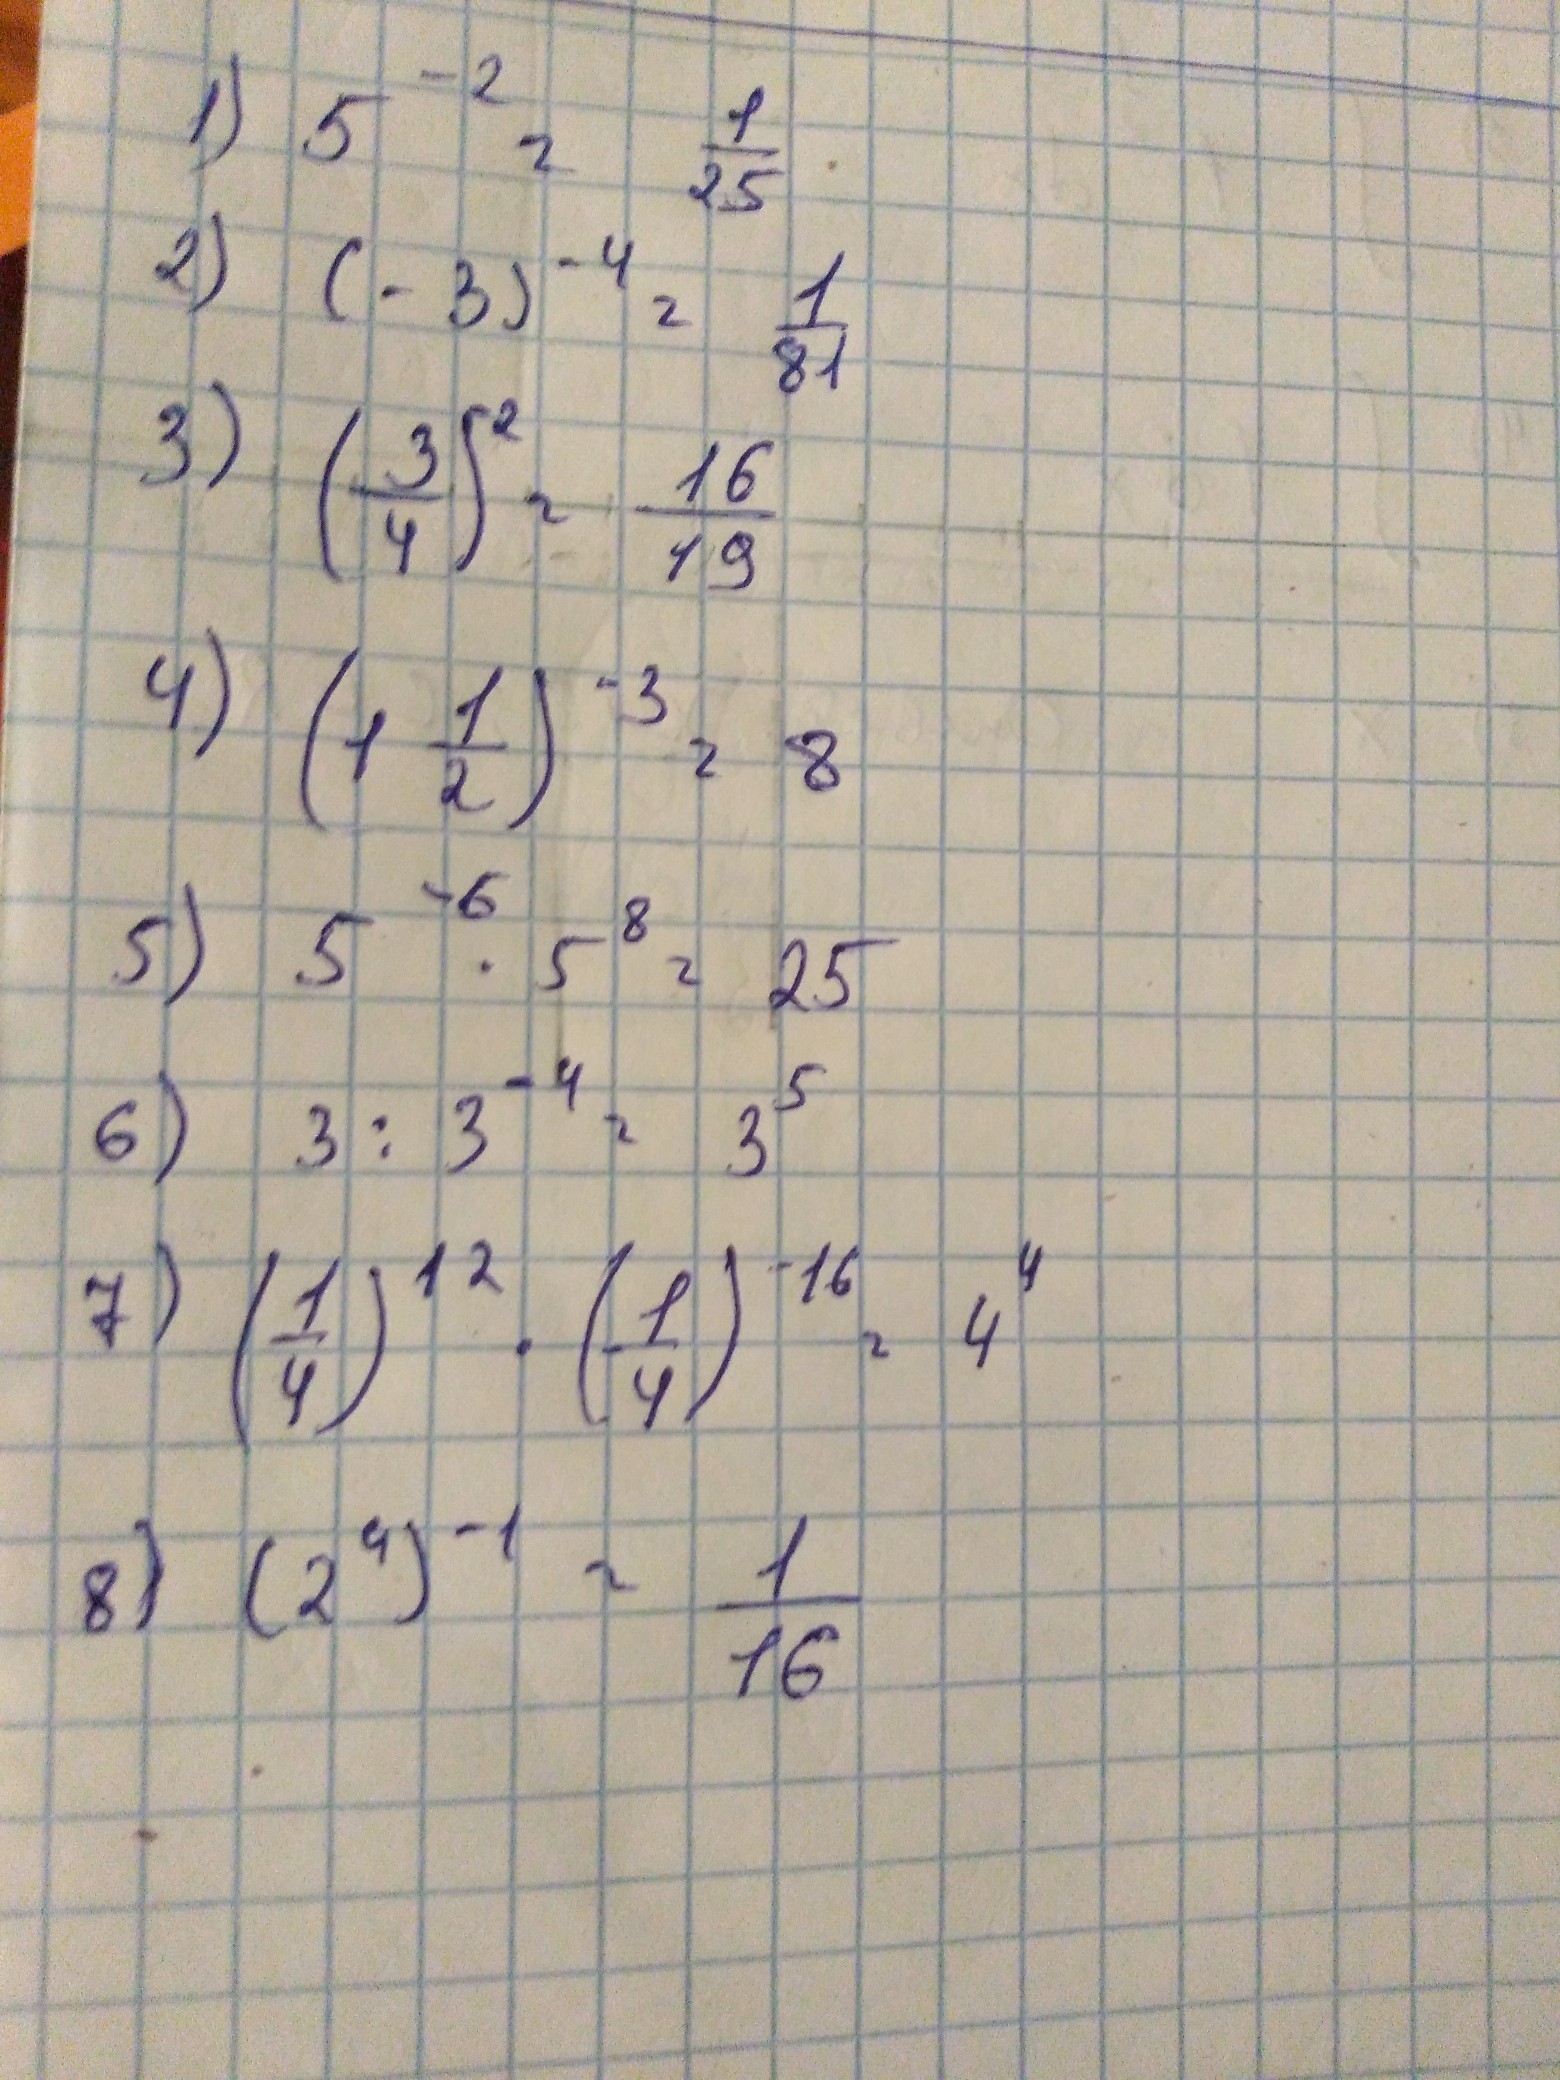 1) 5^{-2} = \frac{1}{25}
2) (-3)^{-4} = \frac{1}{81}
3) (\frac{3}{4})^{2} = \frac{16}{19}
4) (1\frac{1}{2})^{-3} = 8
5) 5^{-6} · 5^{8} = 25
6) 3 : 3^{-4} = 3^{5}
7) (\frac{1}{4})^{12} · (\frac{1}{4})^{-16} = 4^{4}
8) (2^{4})^{-1} = \frac{1}{16}